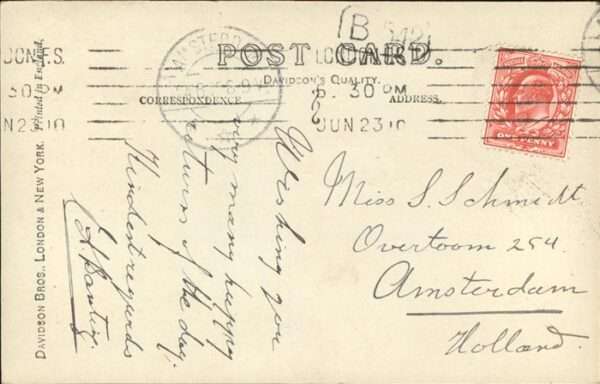 POST CARD.
DAVIDSON'S QUALITY.
CORRESPONDENCE
ADDRESS.
LONDON
6. 30 PM
JUN 23 10
30 PM
N 23 10
AMSTERD
ONE PENNY
B
Wishing you
very many happy
returns of the day.
Kindest regards
Miss S. Schmidt.
Overtoom 254.
Amsterdam
Holland.
DAVIDSON BROS., LONDON & NEW YORK. Printed in England.